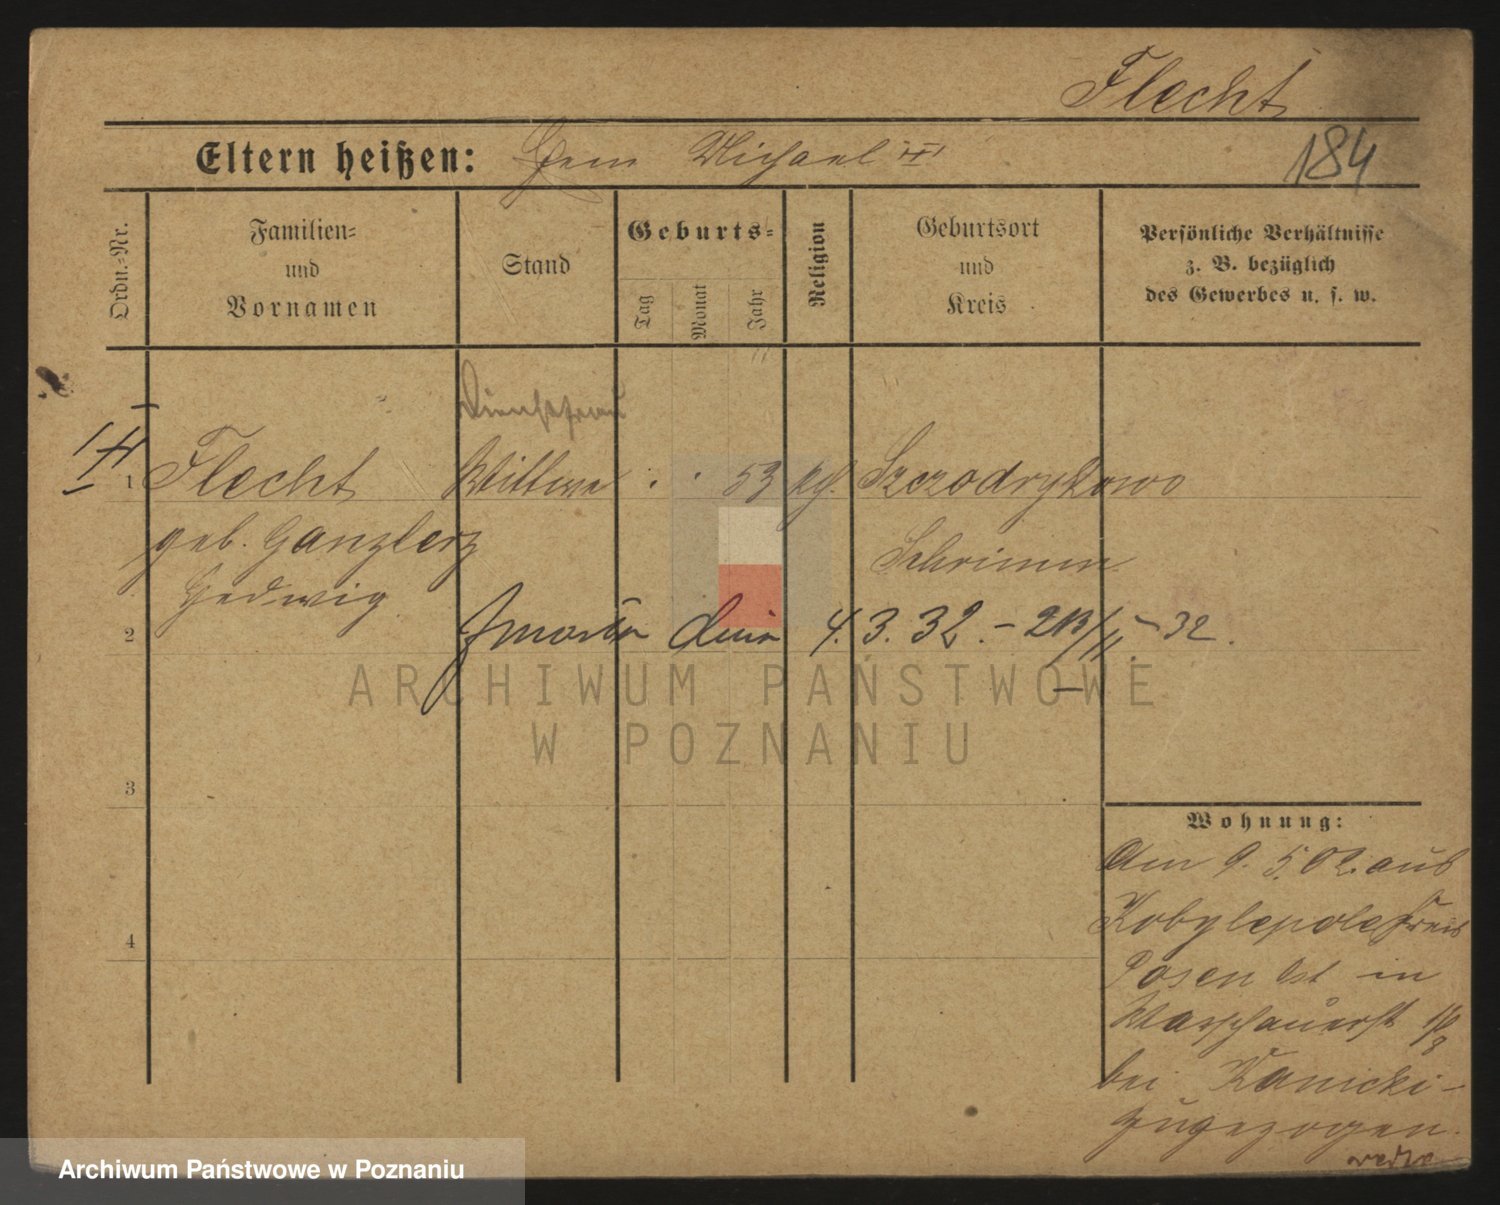 Flecht
Eltern heißen: Michael III
184
Ordn.-Nr.
Familien-
und
Vornamen
Stand
Geburts-
Tag
Monat
Jahr
Religion
Geburtsort
und
Kreis
Persönliche Verhältnisse
z. B. bezüglich
des Gewerbes u. s. w.
Dienstfrau
1 Flecht Wittwe . . 53 kg. Szczodrzykowo
geb. Ganzlerz Schrimm
Hedwig
2 Zmarła dnia 4.3.32. – 213/II – 32.
3
Wohnung:
Am 9.5.02. aus
4 Kobylepole Kreis
Posen Ost in
Warschauerst
bei Kanicki
zugezogen.
ARCHIWUM PAŃSTWOWE
W POZNANIU
Archiwum Państwowe w Poznaniu